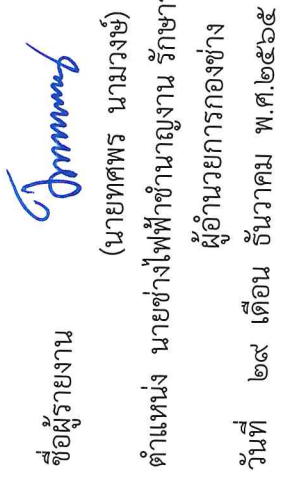 ชื่อผู้รายงาน
(นายทศพร นามวงษ์)
ตำแหน่ง นายช่างไฟฟ้าชำนาญงาน รักษา
ผู้อำนวยการกองช่าง
วันที่ ๒๙ เดือน ธันวาคม พ.ศ.๒๕๖๕